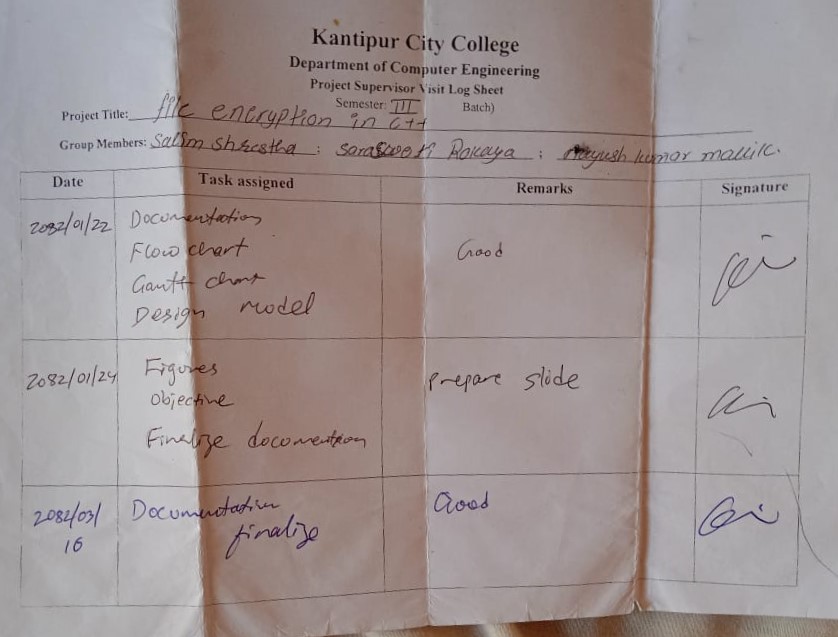 Kantipur City College
Department of Computer Engineering
Project Supervisor Visit Log Sheet
Semester: III Batch)
Project Title: file encryption in C++
Group Members: Salim Shrestha : Saraswoti Rokaya : Aayush kumar mallik.
Date Task assigned Remarks Signature
2082/01/22 Documentation
Flow chart Good
Gantt chart
Design model
2082/01/24 Figures prepare slide
objective
Finalize documention
2082/03/16 Documentation Good
finalize